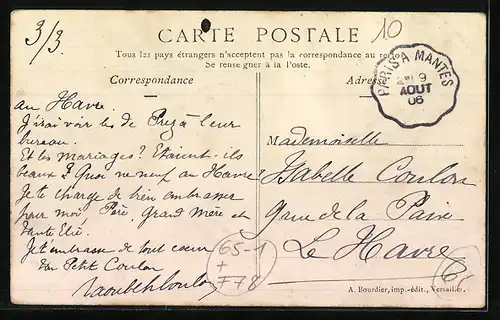 3/3
CARTE POSTALE
10
Tous les pays étrangers n'acceptent pas la correspondance au
Se renseigner à la Poste.
Correspondance
Adresse
PARIS A MANTES
9
AOUT
06
au Havre.
J'irai voir les de à leur
bureau.
Et les mariages? Etaient-ils
beaux? Quoi de neuf au Havre?
Je te charge de bien embrasser
pour moi, Père, Grand Mère et
tante
Je t'embrasse de tout coeur
ton Petit Coulon
Mademoiselle
Isabelle Coulon
rue de la Paix
Le Havre
65-1
+
F78
A. Bourdier, imp.-édit., Versailles.